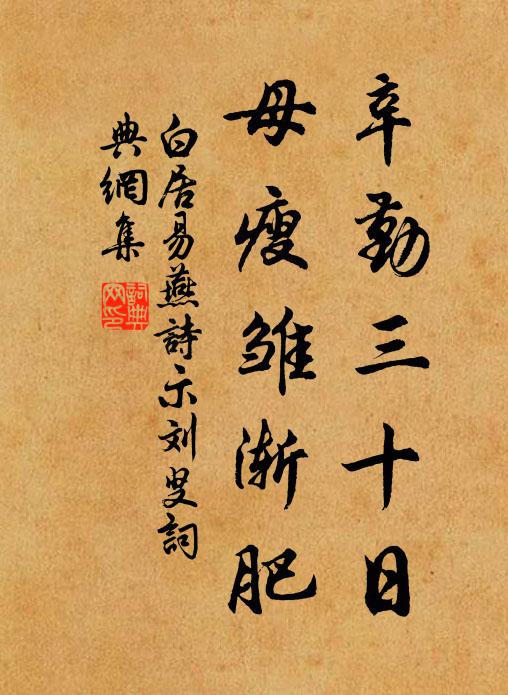 辛勤三十日
母瘦雏渐肥
白居易燕詩示刘叟詞
典網集
詞典
网印